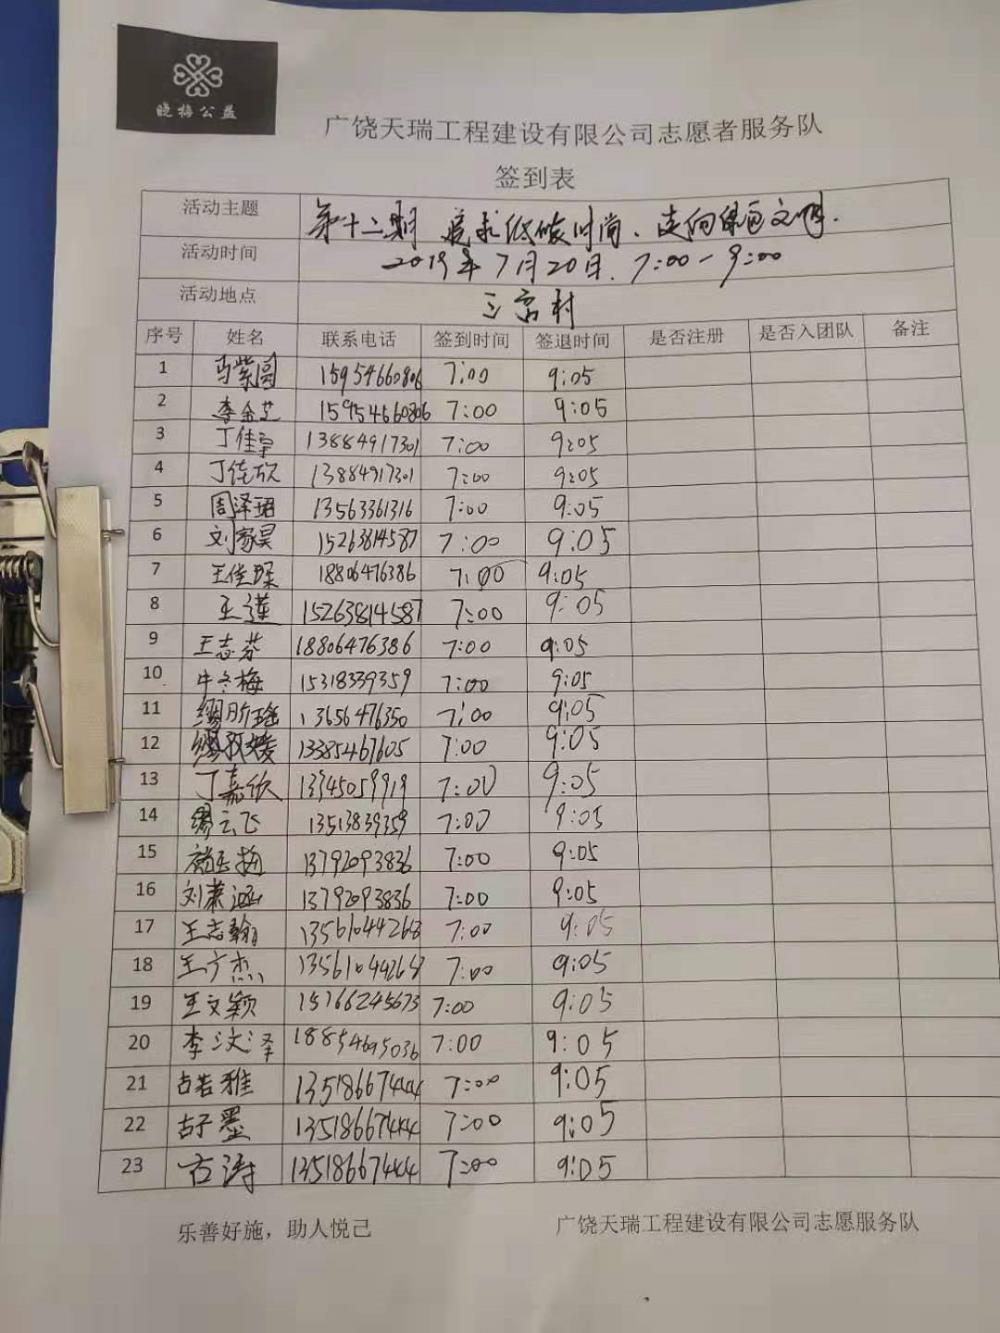 晓梅公益
广饶天瑞工程建设有限公司志愿者服务队
签到表
活动主题 第十二期 追求低碳时尚、走向绿色文明.
活动时间 2019年7月20日. 7:00-9:00
活动地点 三宫村
序号 姓名 联系电话 签到时间 签退时间 是否注册 是否入团队 备注
1 马紫圆 15954660806 7:00 9:05
2 李金芝 15954660806 7:00 9:05
3 丁佳 13884917301 7:00 9:05
4 丁佳欣 13884917301 7:00 9:05
5 周泽珺 13563361316 7:00 9:05
6 刘家昊 15263814587 7:00 9:05
7 王佳琛 18806476386 7:00 9:05
8 王瑾 15263814587 7:00 9:05
9 王志芬 18806476386 7:00 9:05
10 牛冬梅 15318339359 7:00 9:05
11 缪 13656476350 7:00 9:05
12 缪 媛 13385467605 7:00 9:05
13 丁嘉欣 13945059919 7:00 9:05
14 缪云飞 13513839359 7:00 9:05
15 13792093836 7:00 9:05
16 刘 涵 13792093836 7:00 9:05
17 王志翰 13561044268 7:00 9:05
18 王广杰 13561044268 7:00 9:05
19 王文颖 15766245673 7:00 9:05
20 李汶泽 18854695036 7:00 9:05
21 古若雅 13518667444 7:00 9:05
22 古子墨 13518667444 7:00 9:05
23 古涛 13518667444 7:00 9:05
乐善好施，助人悦己 广饶天瑞工程建设有限公司志愿服务队